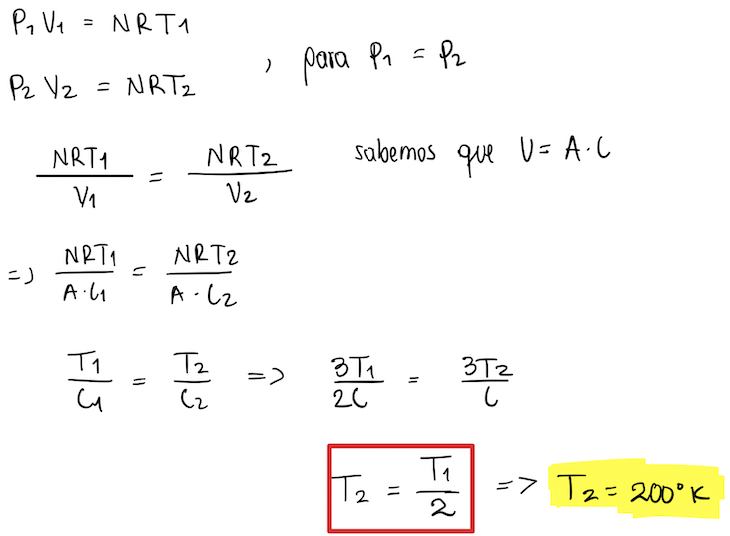 P1 V1 = NRT1
P2 V2 = NRT2 , para P1 = P2
NRT1/V1 = NRT2/V2 sabemos que V = A·L
=> NRT1/A·L1 = NRT2/A·L2
T1/L1 = T2/L2 => 3T1/2L = 3T2/L
T2 = T1/2 => T2 = 200°K